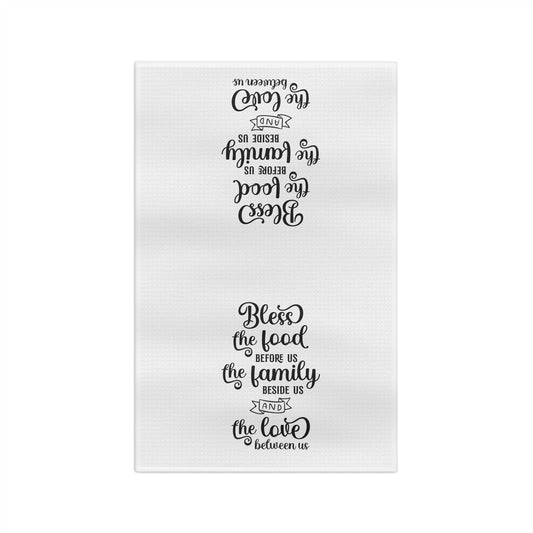 the love
between us
AND
BESIDE US
the family
BEFORE US
the food
Bless
Bless
the food
BEFORE US
the family
BESIDE US
AND
the love
between us